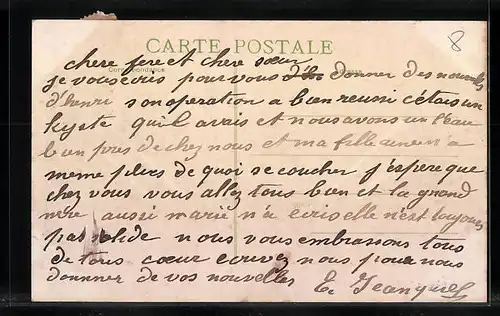 8
CARTE POSTALE
Correspondance
chere frere et chere sœur
je vous ecris pour vous donner des nouvelles
d'henri son operation a bien reussi cetais un
kyste quil avais et nous avons un
bien pres de chez nous et ma fille a
meme plus de quoi se coucher j'espere que
chez vous vous allez tous bien et la grand
mere aussi marie n'a ecris elle n'est toujours
pas solide nous vous embrassons tous
de tous cœur ecrivez nous pour nous
donnner de vos nouvelles E.